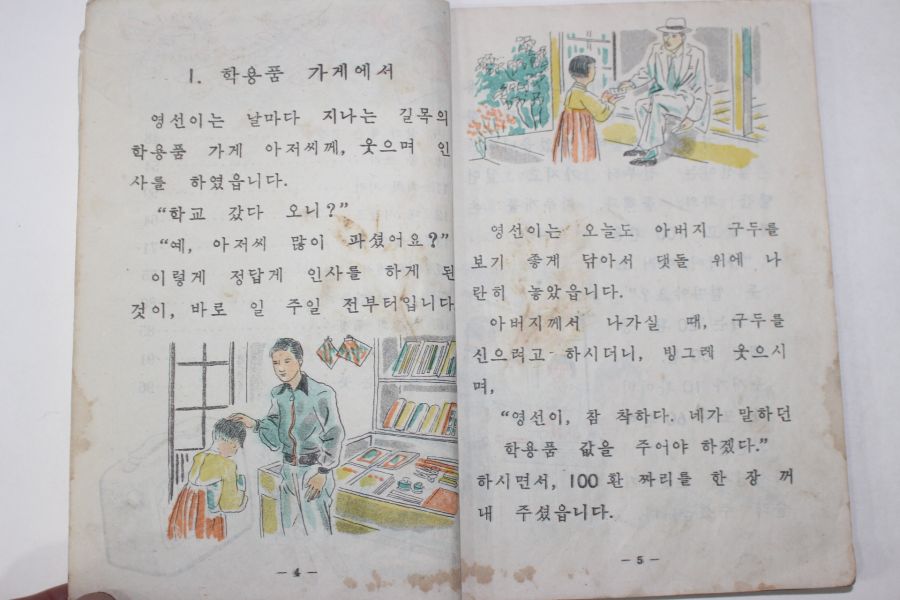 1. 학용품 가게에서
영선이는 날마다 지나는 길목의
학용품 가게 아저씨께, 웃으며 인
사를 하였읍니다.
“학교 갔다 오니?”
“예, 아저씨 많이 파셨어요?”
이렇게 정답게 인사를 하게 된
것이, 바로 일 주일 전부터입니다
— 4 —
영선이는 오늘도 아버지 구두를
보기 좋게 닦아서 댓돌 위에 나
란히 놓았읍니다.
아버지께서 나가실 때, 구두를
신으려고 하시더니, 빙그레 웃으시
며,
“영선이, 참 착하다. 네가 말하던
학용품 값을 주어야 하겠다.”
하시면서, 100 환 짜리를 한 장 꺼
내 주셨읍니다.
— 5 —